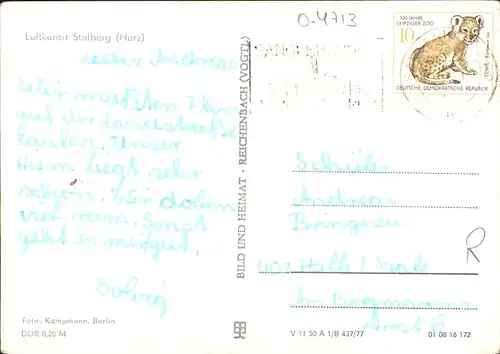 Luftkurort Stolberg (Harz)
O-4713
100 JAHRE
LEIPZIGER ZOO
10
DEUTSCHE DEMOKRATISCHE REPUBLIK
Lieber Andreas
Wir mußten 7 km
auf der Landstraße
laufen. Unser
Heim liegt sehr
schön. Wir toben
viel rum. Sonst
geht es mir gut.
BILD UND HEIMAT • REICHENBACH (VOGTL)
Schüler
Andreas
402 Halle/Saale
R
Foto: Kampmann, Berlin
DDR 0,20 M
V 11 50 A 1/B 437/77
01 08 16 172